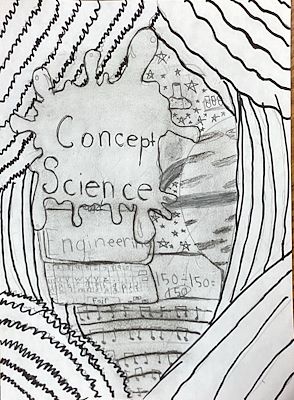 Concept
Science
Engineering
Fair
150÷150=
150